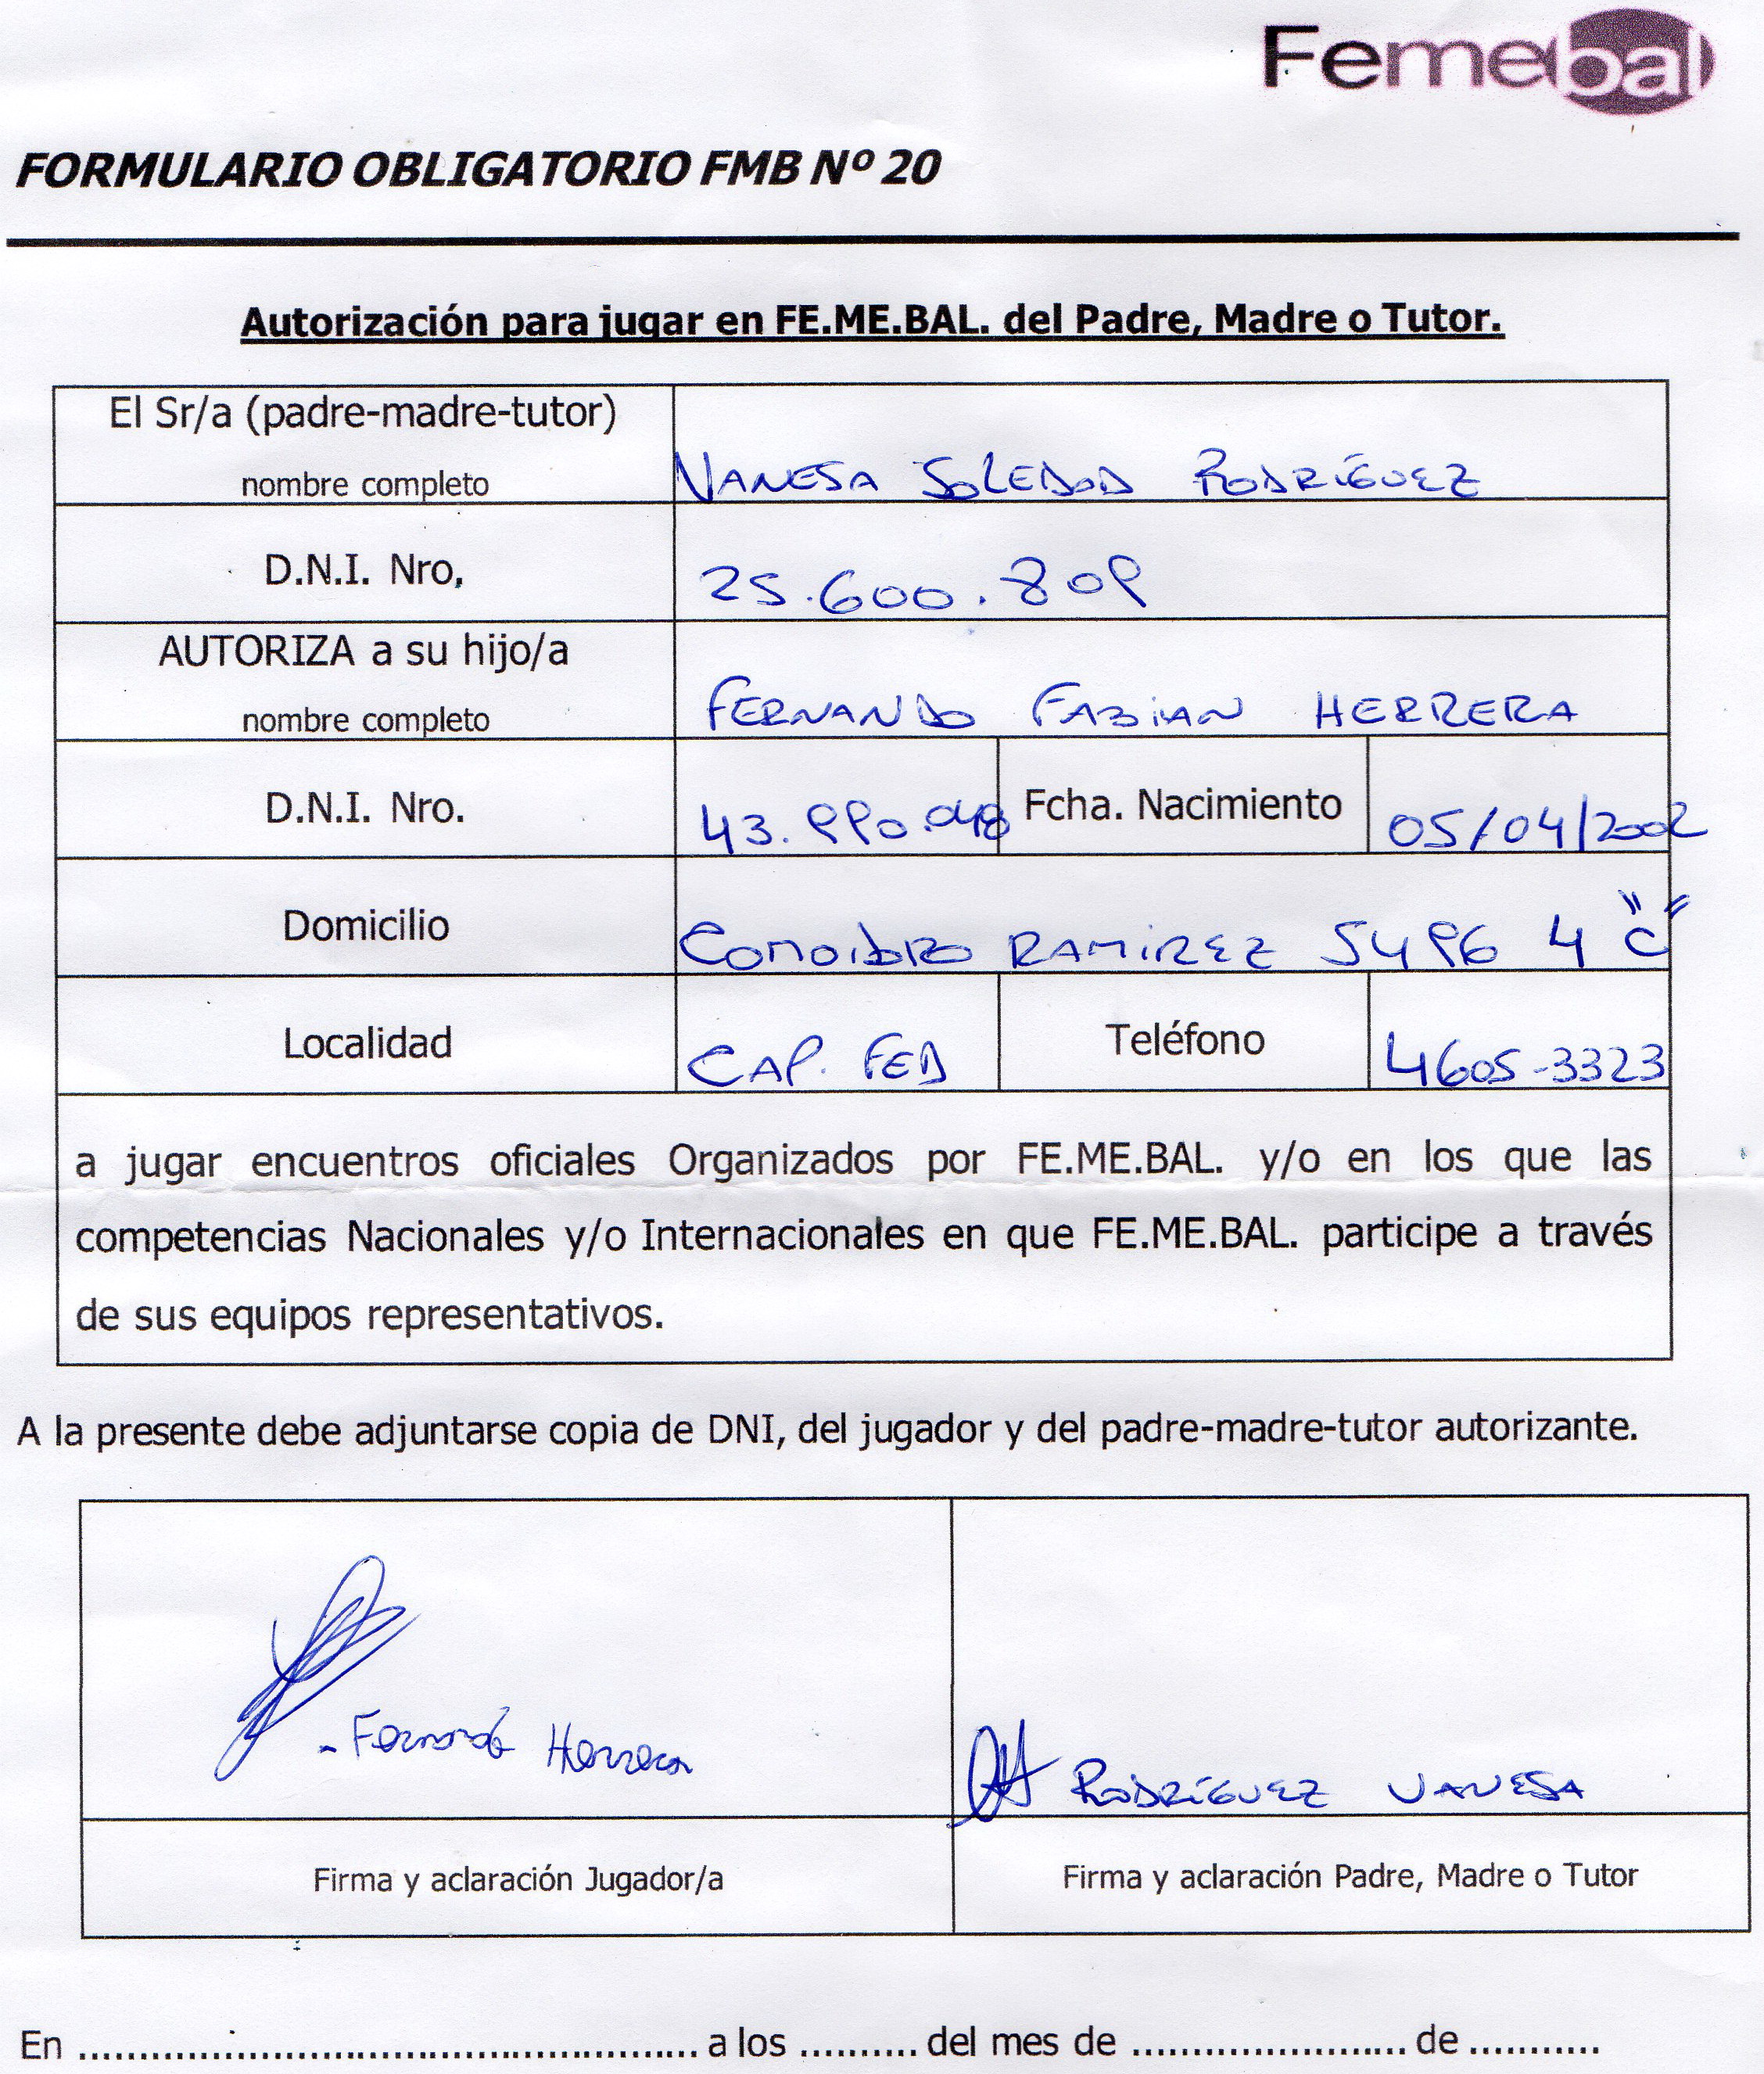 Femebal
FORMULARIO OBLIGATORIO FMB Nº 20
Autorización para jugar en FE.ME.BAL. del Padre, Madre o Tutor.
El Sr/a (padre-madre-tutor)
nombre completo
VANESA SOLEDAD RODRÍGUEZ
D.N.I. Nro,
25.600.809
AUTORIZA a su hijo/a
nombre completo
FERNANDO FABIAN HERRERA
D.N.I. Nro.
43.990.048
Fcha. Nacimiento
05/04/2002
Domicilio
RAMIREZ 5496 4 "C"
Localidad
CAP. FED
Teléfono
4605-3323
a jugar encuentros oficiales Organizados por FE.ME.BAL. y/o en los que las
competencias Nacionales y/o Internacionales en que FE.ME.BAL. participe a través
de sus equipos representativos.
A la presente debe adjuntarse copia de DNI, del jugador y del padre-madre-tutor autorizante.
- Fernando Herrera
RODRÍGUEZ VANESA
Firma y aclaración Jugador/a
Firma y aclaración Padre, Madre o Tutor
En .................................................. a los .......... del mes de ....................... de ...........